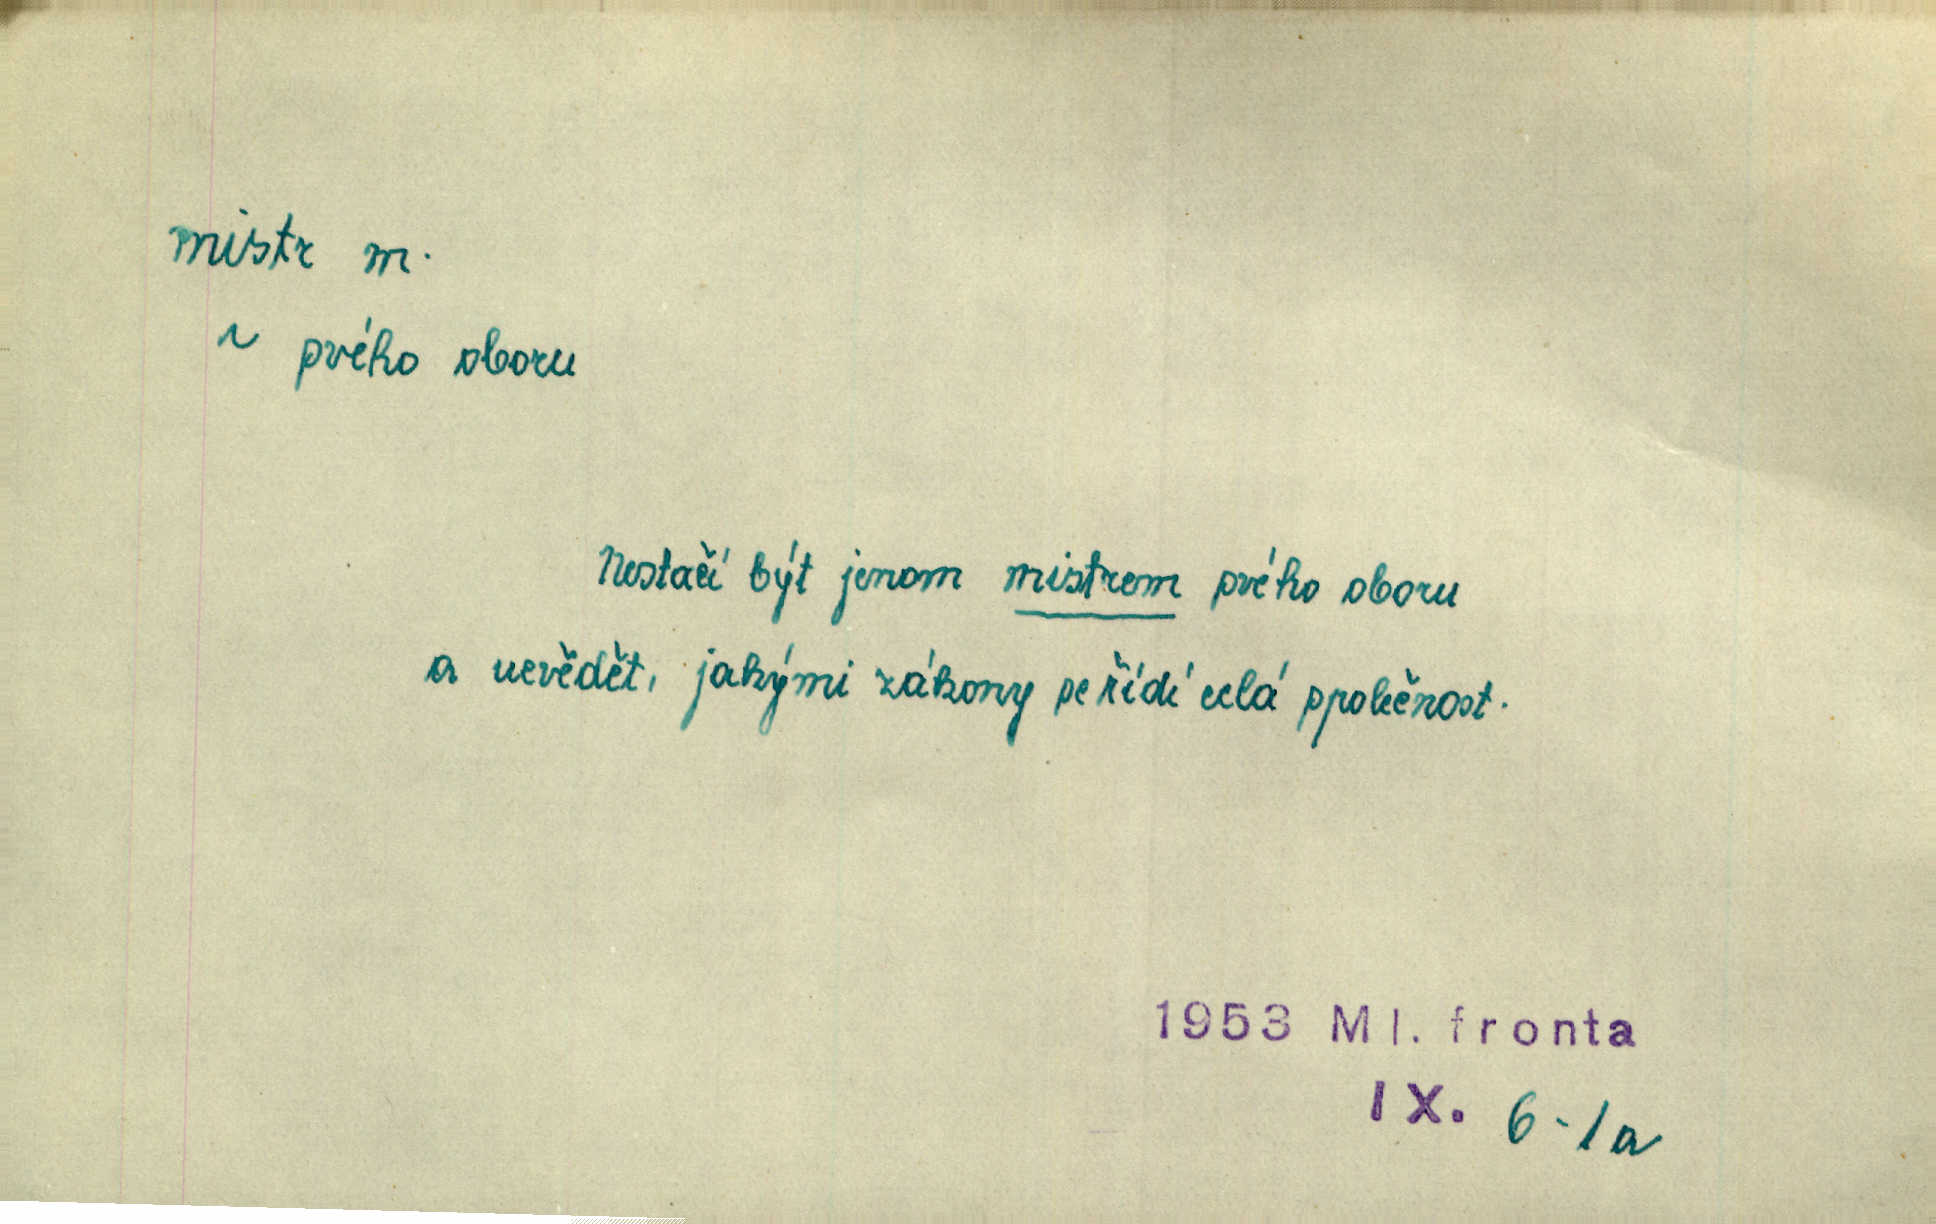 mistr m.
~ svého oboru
Nestačí být jenom mistrem svého oboru
a nevědět, jakými zákony se řídí celá společnost.
1953 Ml. fronta
IX. 6-1a